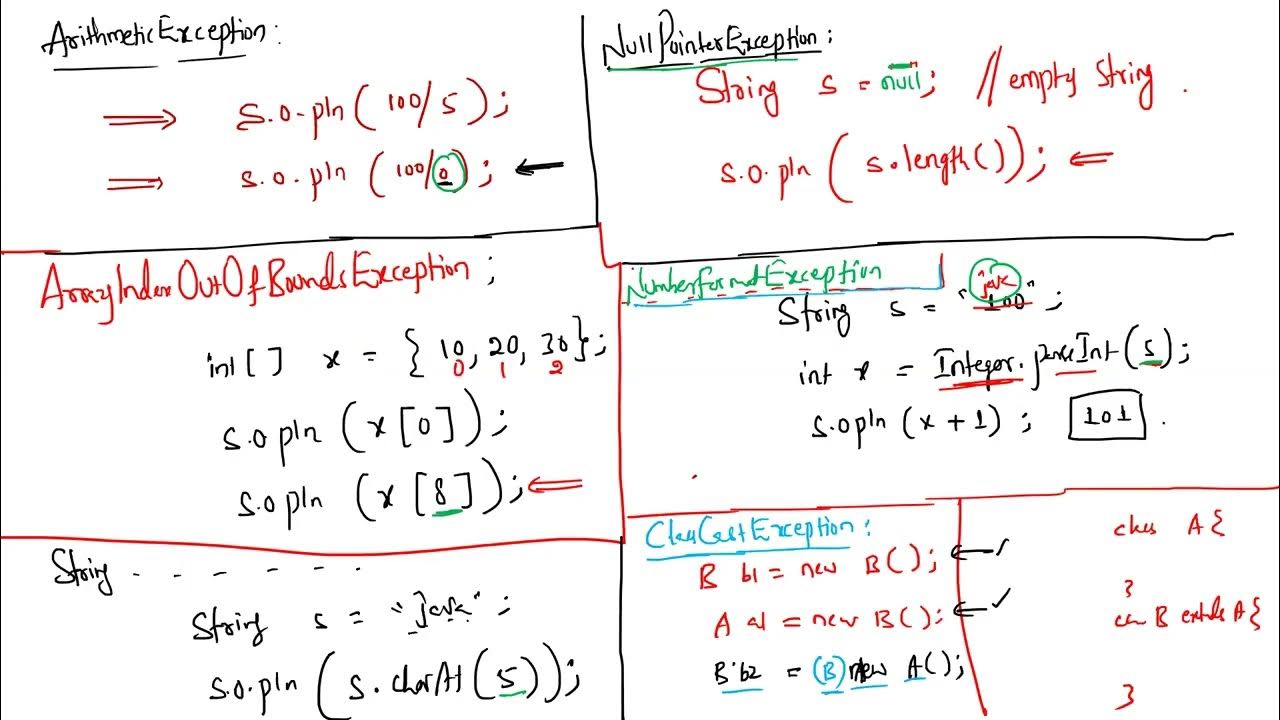 ArithmeticException:
⇒ S.o.pln(100/5);
⇒ s.o.pln(100/0); ←
NullPointerException:
String s = null; // empty String .
s.o.pln(s.length()); ⇐
ArrayIndexOutOfBoundsException;
int[] x = {10, 20, 30};
0 1 2
s.o pln (x[0]);
s.o pln (x[8]); ⇐
NumberFormatException
java
String s = "100";
int x = Integer.parseInt(s);
s.o pln (x+1); 101 .
String - - - - - -
String s = "java";
s.o.pln(s.charAt(5));
ClassCastException:
B b1 = new B(); ← ✓
A a1 = new B(); ← ✓
B b2 = (B) new A();
class A{
}
class B extends A{
}